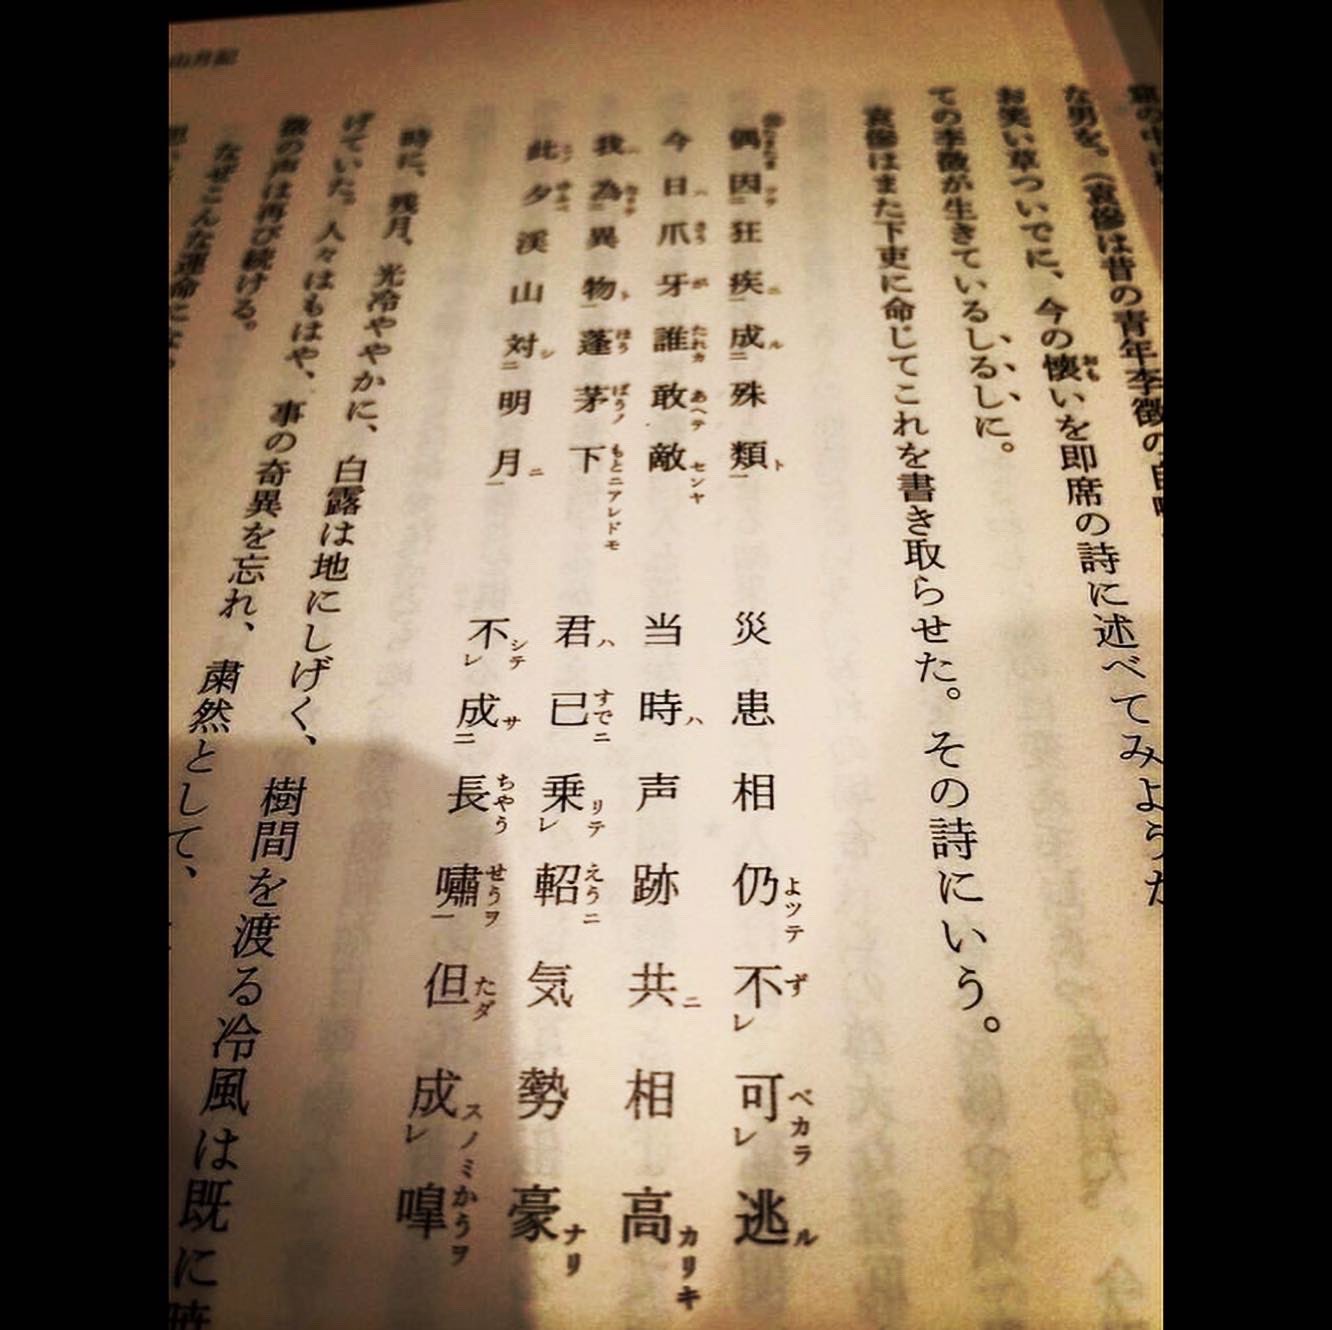 山月記
な男を。(袁傪は昔の青年李徴の自嘲
お笑い草ついでに、今の懐いを即席の詩に述べてみようか
ての李徴が生きているしるしに。
袁傪はまた下吏に命じてこれを書き取らせた。その詩にいう。
偶因狂疾成殊類 災患相仍不可逃
今日爪牙誰敢敵 当時声跡共相高
我為異物蓬茅下 君已乗軺気勢豪
此夕渓山対明月 不成長嘯但成嘷
時に、残月、光冷ややかに、白露は地にしげく、樹間を渡る冷風は既に暁
げていた。人々はもはや、事の奇異を忘れ、粛然として、
徴の声は再び続ける。
なぜこんな運命になっ